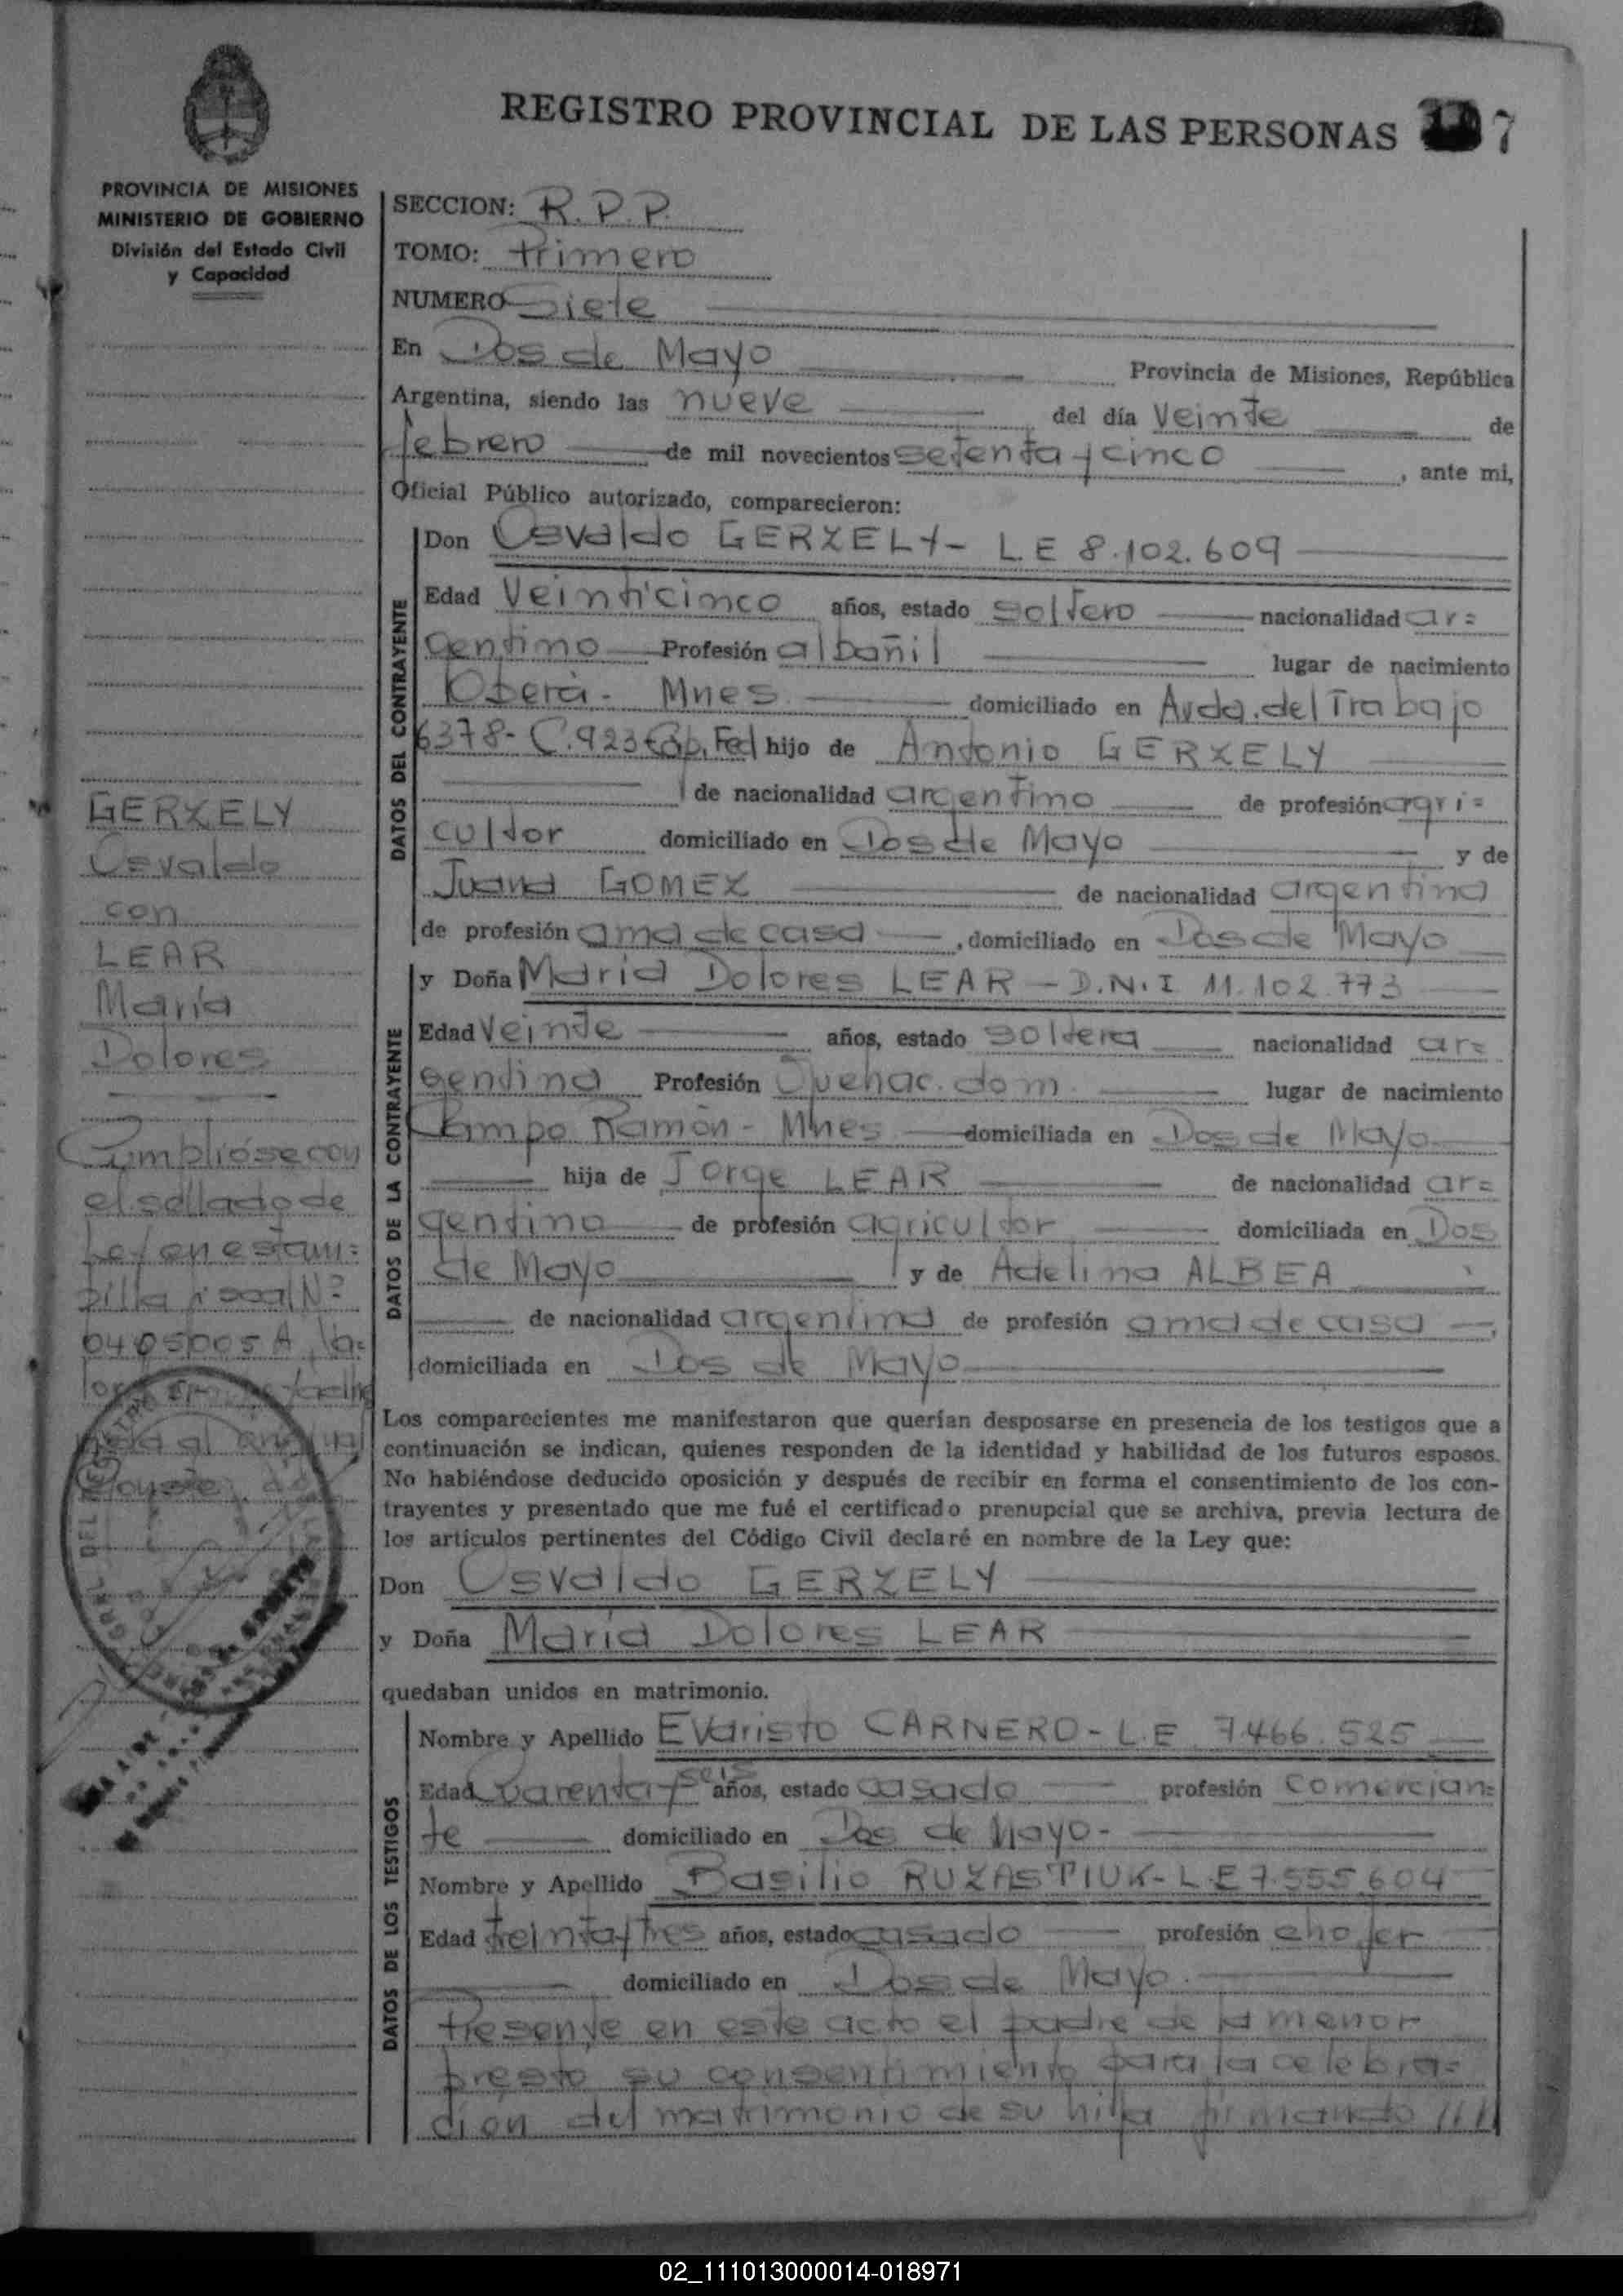 REGISTRO PROVINCIAL DE LAS PERSONAS 7
PROVINCIA DE MISIONES
MINISTERIO DE GOBIERNO
División del Estado Civil
y Capacidad
SECCION: R.P.P.
TOMO: Primero
NUMERO Siete
En Dos de Mayo Provincia de Misiones, República
Argentina, siendo las nueve del día veinte de
febrero de mil novecientos setenta y cinco, ante mi,
Oficial Público autorizado, comparecieron:
DATOS DEL CONTRAYENTE
Don Osvaldo GERZELY - LE 8.102.609
Edad Veinticinco años, estado soltero nacionalidad ar=
gentino Profesión albañil lugar de nacimiento
Oberá - Mnes domiciliado en Avda. del Trabajo
6378 - Cap. Fed hijo de Antonio GERZELY
de nacionalidad argentino de profesión agri=
cultor domiciliado en Dos de Mayo y de
Juana GOMEZ de nacionalidad argentina
de profesión ama de casa, domiciliado en Dos de Mayo
DATOS DE LA CONTRAYENTE
y Doña María Dolores LEAR - D.N.I 11.102.773
Edad Veinte años, estado soltera nacionalidad ar=
gentina Profesión Quehac. dom. lugar de nacimiento
Campo Ramón - Mnes domiciliada en Dos de Mayo
hija de Jorge LEAR de nacionalidad ar=
gentino de profesión agricultor domiciliada en Dos
de Mayo y de Adelina ALBEA
de nacionalidad argentina de profesión ama de casa,
domiciliada en Dos de Mayo
Los comparecientes me manifestaron que querían desposarse en presencia de los testigos que a
continuación se indican, quienes responden de la identidad y habilidad de los futuros esposos.
No habiéndose deducido oposición y después de recibir en forma el consentimiento de los con-
trayentes y presentado que me fué el certificado prenupcial que se archiva, previa lectura de
los artículos pertinentes del Código Civil declaré en nombre de la Ley que:
Don Osvaldo GERZELY
y Doña María Dolores LEAR
quedaban unidos en matrimonio.
DATOS DE LOS TESTIGOS
Nombre y Apellido Evaristo CARNERO - L.E 7.466.525
Edad Cuarenta y seis años, estado casado profesión comercian=
te domiciliado en Dos de Mayo -
Nombre y Apellido Basilio RUZASTIUK - L.E 7.555.604
Edad treinta y tres años, estado casado profesión chofer
domiciliado en Dos de Mayo.
Presente en este acto el padre de la menor
presto su consentimiento para la celebra=
cion del matrimonio de su hija firmando ////
GERZELY
Osvaldo
con
LEAR
María
Dolores
Cumplióse con
el sellado de
Ley en estam=
pilla fiscal Nº
0405005 A
02_111013000014-018971